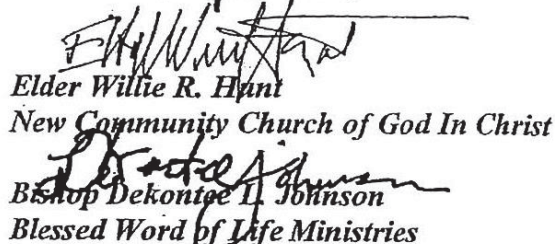 Elder Willie R. Hunt
New Community Church of God In Christ
Dekontee Johnson
Bishop Dekontee L. Johnson
Blessed Word of Life Ministries